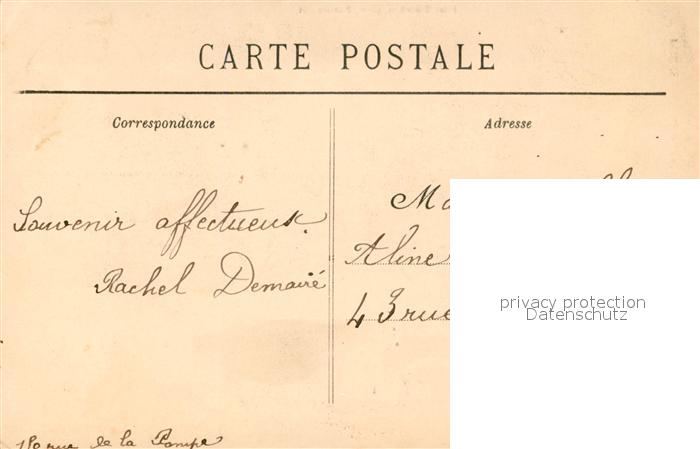 CARTE POSTALE
Correspondance
Adresse
Souvenir affectueux.
Rachel Demairé
Aline
43 rue
rue de la Pompe
privacy protection
Datenschutz